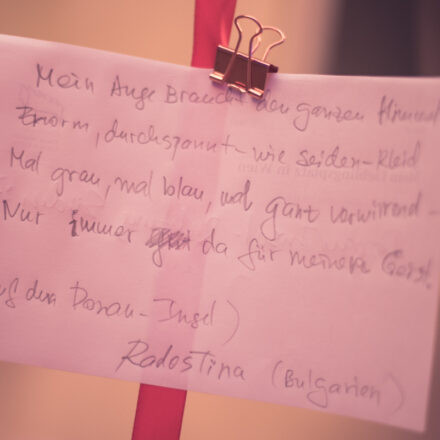 Mein Auge Braucht den ganzen Himmel
Enorm, durchsponnt wie seiden-Kleid
Mal grau, mal blau, mal ganz verwirrend -
Nur immer da für meinen Geist.
auf dem Donau-Insel)
Radostina (Bulgarien)